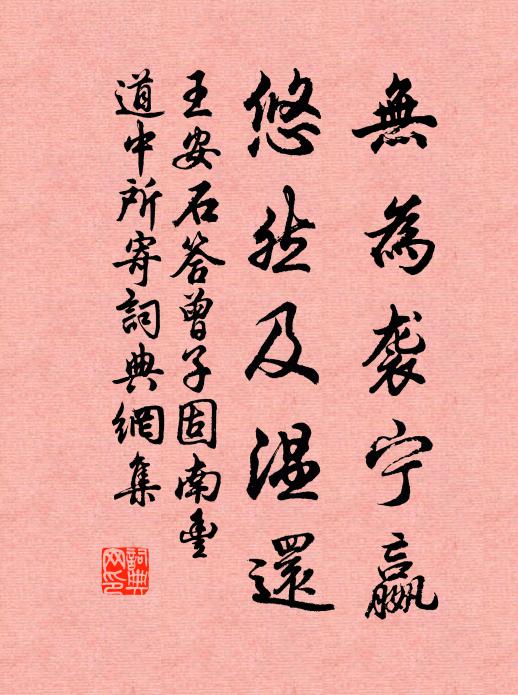 無為袭宁嬴
悠然及温還
王安石答曾子固南豐
道中所寄詞典網集
詞典
网印